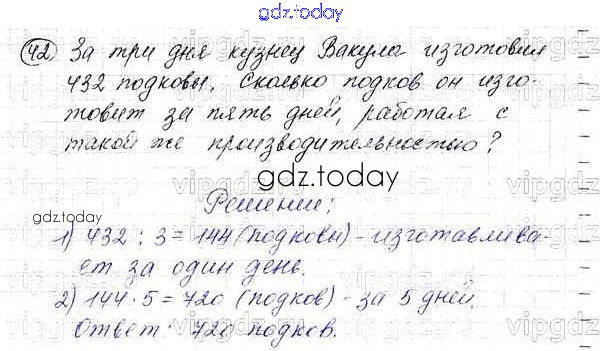 gdz.today
42 За три дня кузнец Вакула изготовил
432 подковы. Сколько подков он изго-
товит за пять дней, работая с
такой же производительностью?
gdz.today
Решение:
1) 432 : 3 = 144 (подковы) - изготавлива-
ет за один день.
2) 144 · 5 = 720 (подков) - за 5 дней.
Ответ: 720 подков.
gdz.today
gdz.today